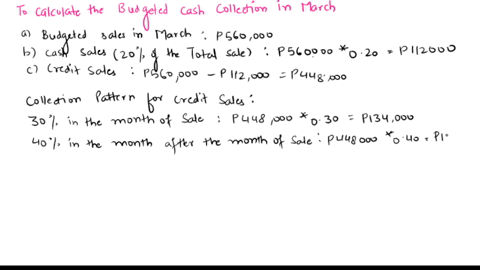 To Calculate the Budgeted Cash Collection in March
a) Budgeted sales in March : P560,000
b) Cash Sales (20% of the Total Sale) : P560000 * 0.20 = P112000
c) Credit Sales : P560,000 - P112,000 = P448,000
Collection Pattern for Credit Sales :
30% in the month of Sale : P448,000 * 0.30 = P134,000
40% in the month after the month of Sale : P448000 * 0.40 = P1